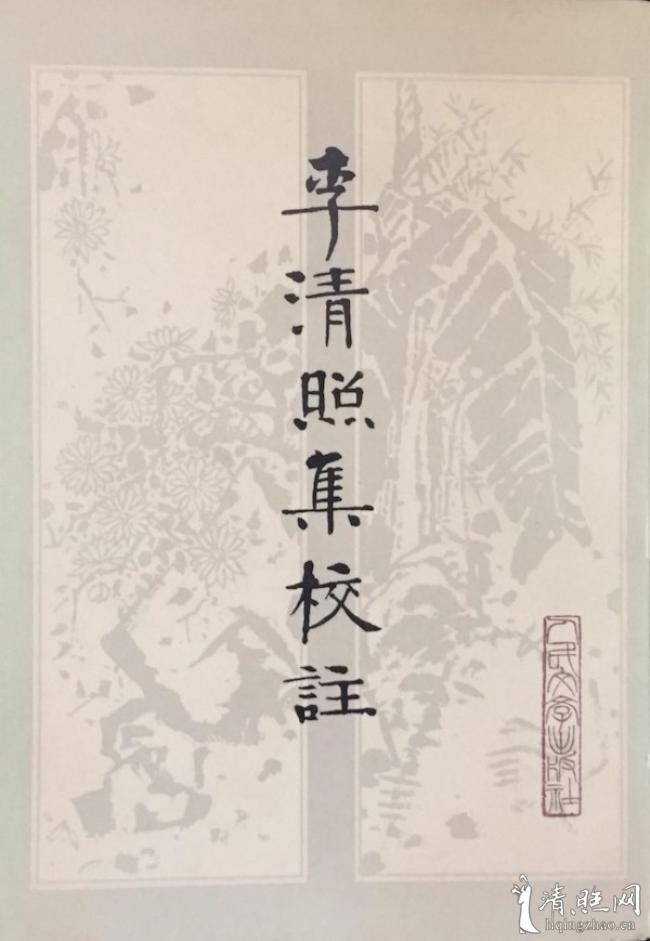 李清照集校註
人民文学出版社
清照网
liqingzhao.cn